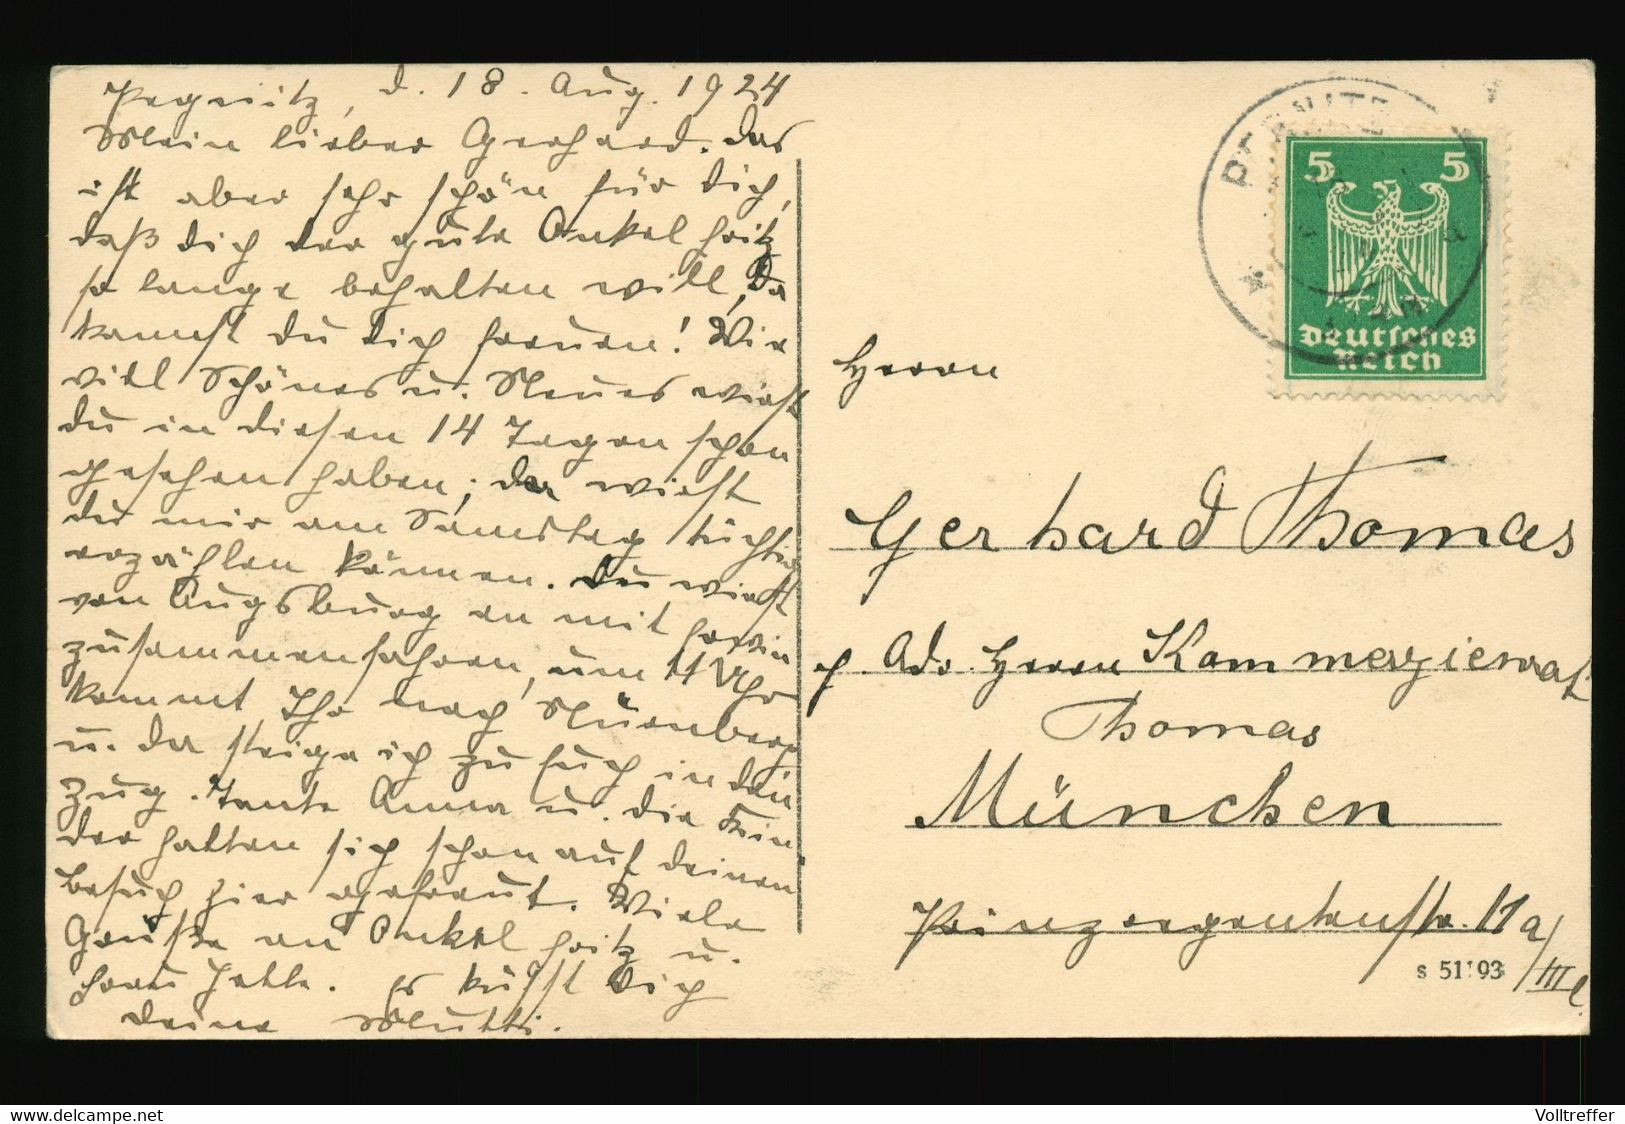 Pegnitz, d. 18. Aug. 1924
Mein lieber Gerhard. Das
ist aber sehr schön für Dich,
daß Dich der gute Onkel Fritz
so lange behalten will, Da
kannst Du Dich freuen! Wie
viel Schönes u. Neues wirst
Du in diesen 14 Tagen schon
gesehen haben; da wirst
du mir am Samstag tüchtig
erzählen können. Du wirst
von Augsburg an mit
zusammenfahren, um 11 Uhr
kommt Ihr nach Nürnberg
u. da steige ich zu Euch in den
Zug. Tante Anna u. die Kin-
der hatten sich schon auf deinen
Besuch hier gefreut. Viele
Grüße an Onkel Fritz u.
Frau. Es küßt Dich
Deine Mutti.
PEGNITZ
5 5
Deutsches
Reich
Herrn
Gerhard Thomas
p. Adr. Herrn Kommerzienrat
Thomas
München
Prinzregentenstr. 11a/III l.
s 51193
Volltreffer
www.delcampe.net